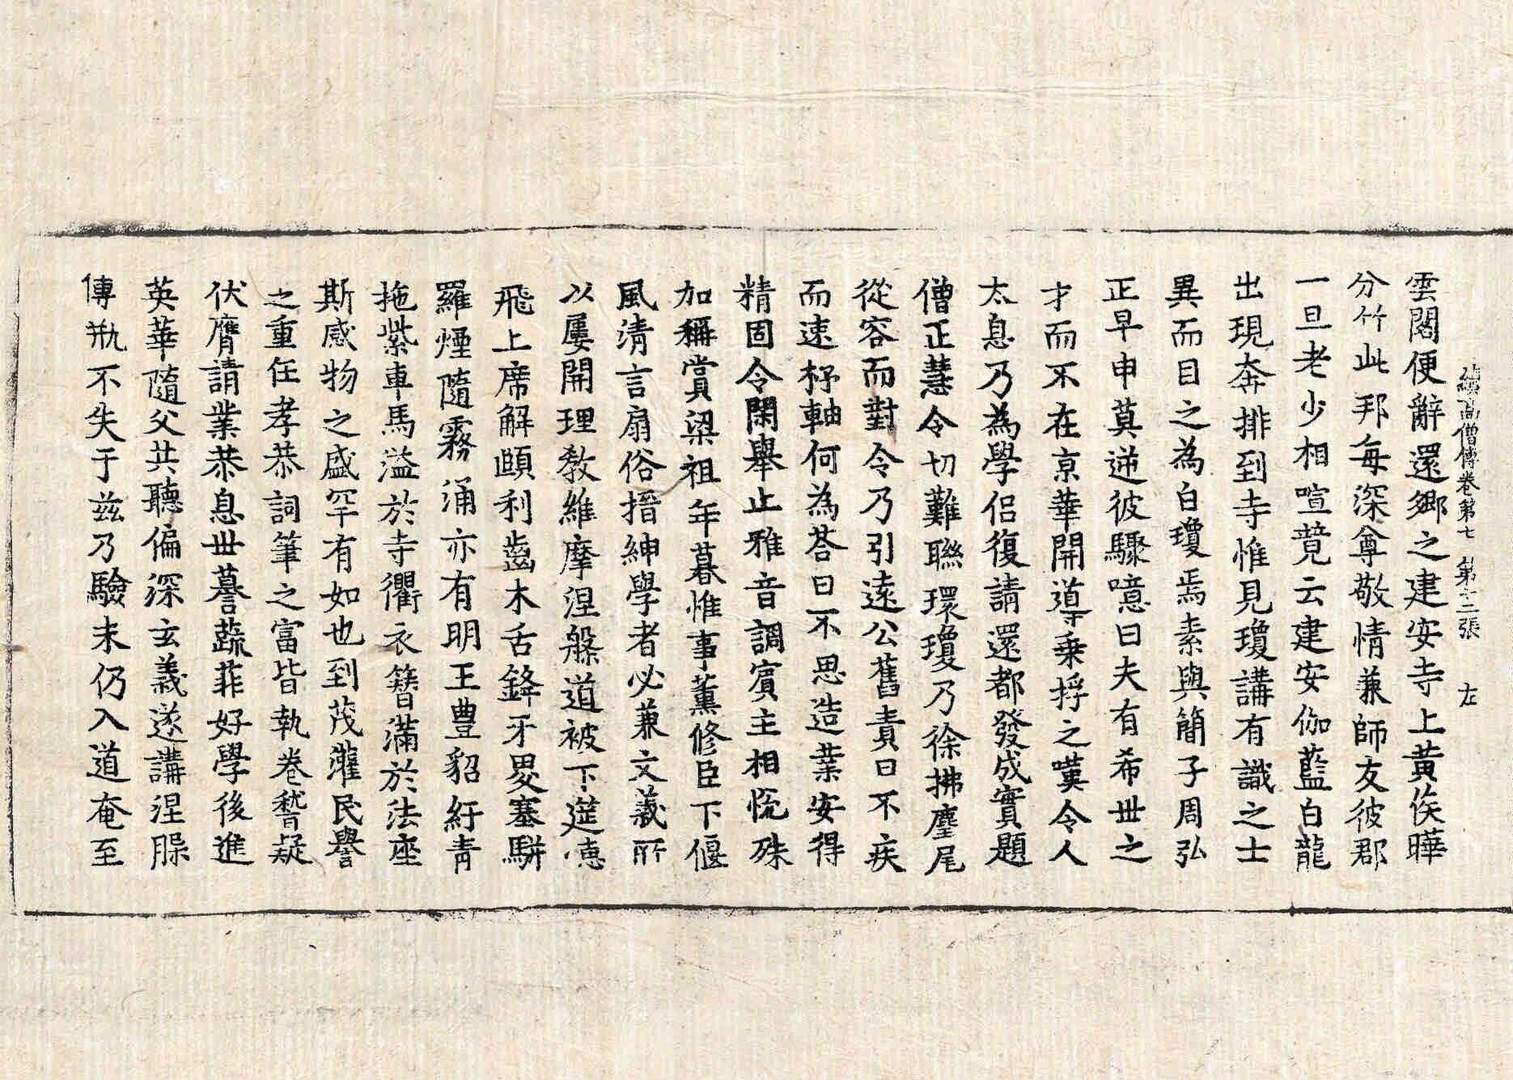 續高僧傳卷第七 第十二張 左
雲閣便辭還鄉之建安寺上黃侯曄
分竹此邦每深尊敬情兼師友彼郡
一旦老少相喧競云建安伽藍白龍
出現奔排到寺惟見瓊講有識之士
異而目之為白瓊焉素與簡子周弘
正早申莫逆彼驟噫曰夫有希世之
才而不在京華開導乗捊之嘆令人
太息乃為學侶復請還都發成實題
僧正慧令切難聯環瓊乃徐拂麈尾
從容而對令乃引遠公舊責曰不疾
而速杼軸何為荅曰不思造業安得
精固令閑舉止雅音調賓主相恱殊
加稱賞梁祖年暮惟事薰修臣下偃
風清言扇俗搢紳學者必兼文義所
以屢開理教維摩涅槃道被下筵德
飛上席解頤利齒木舌鋒牙罢塞駢
羅煙隨霧涌亦有明王豊貂紆青
拖紫車馬溢於寺衢衣簪滿於法座
斯感物之盛罕有如也到茂灌民譽
之重任孝恭詞筆之富皆執卷諮疑
伏膺請業恭息世謩蔬菲好學後進
英華隨父共聽偏深玄義遂講涅槃
傳瓶不失于茲乃驗末仍入道奄至